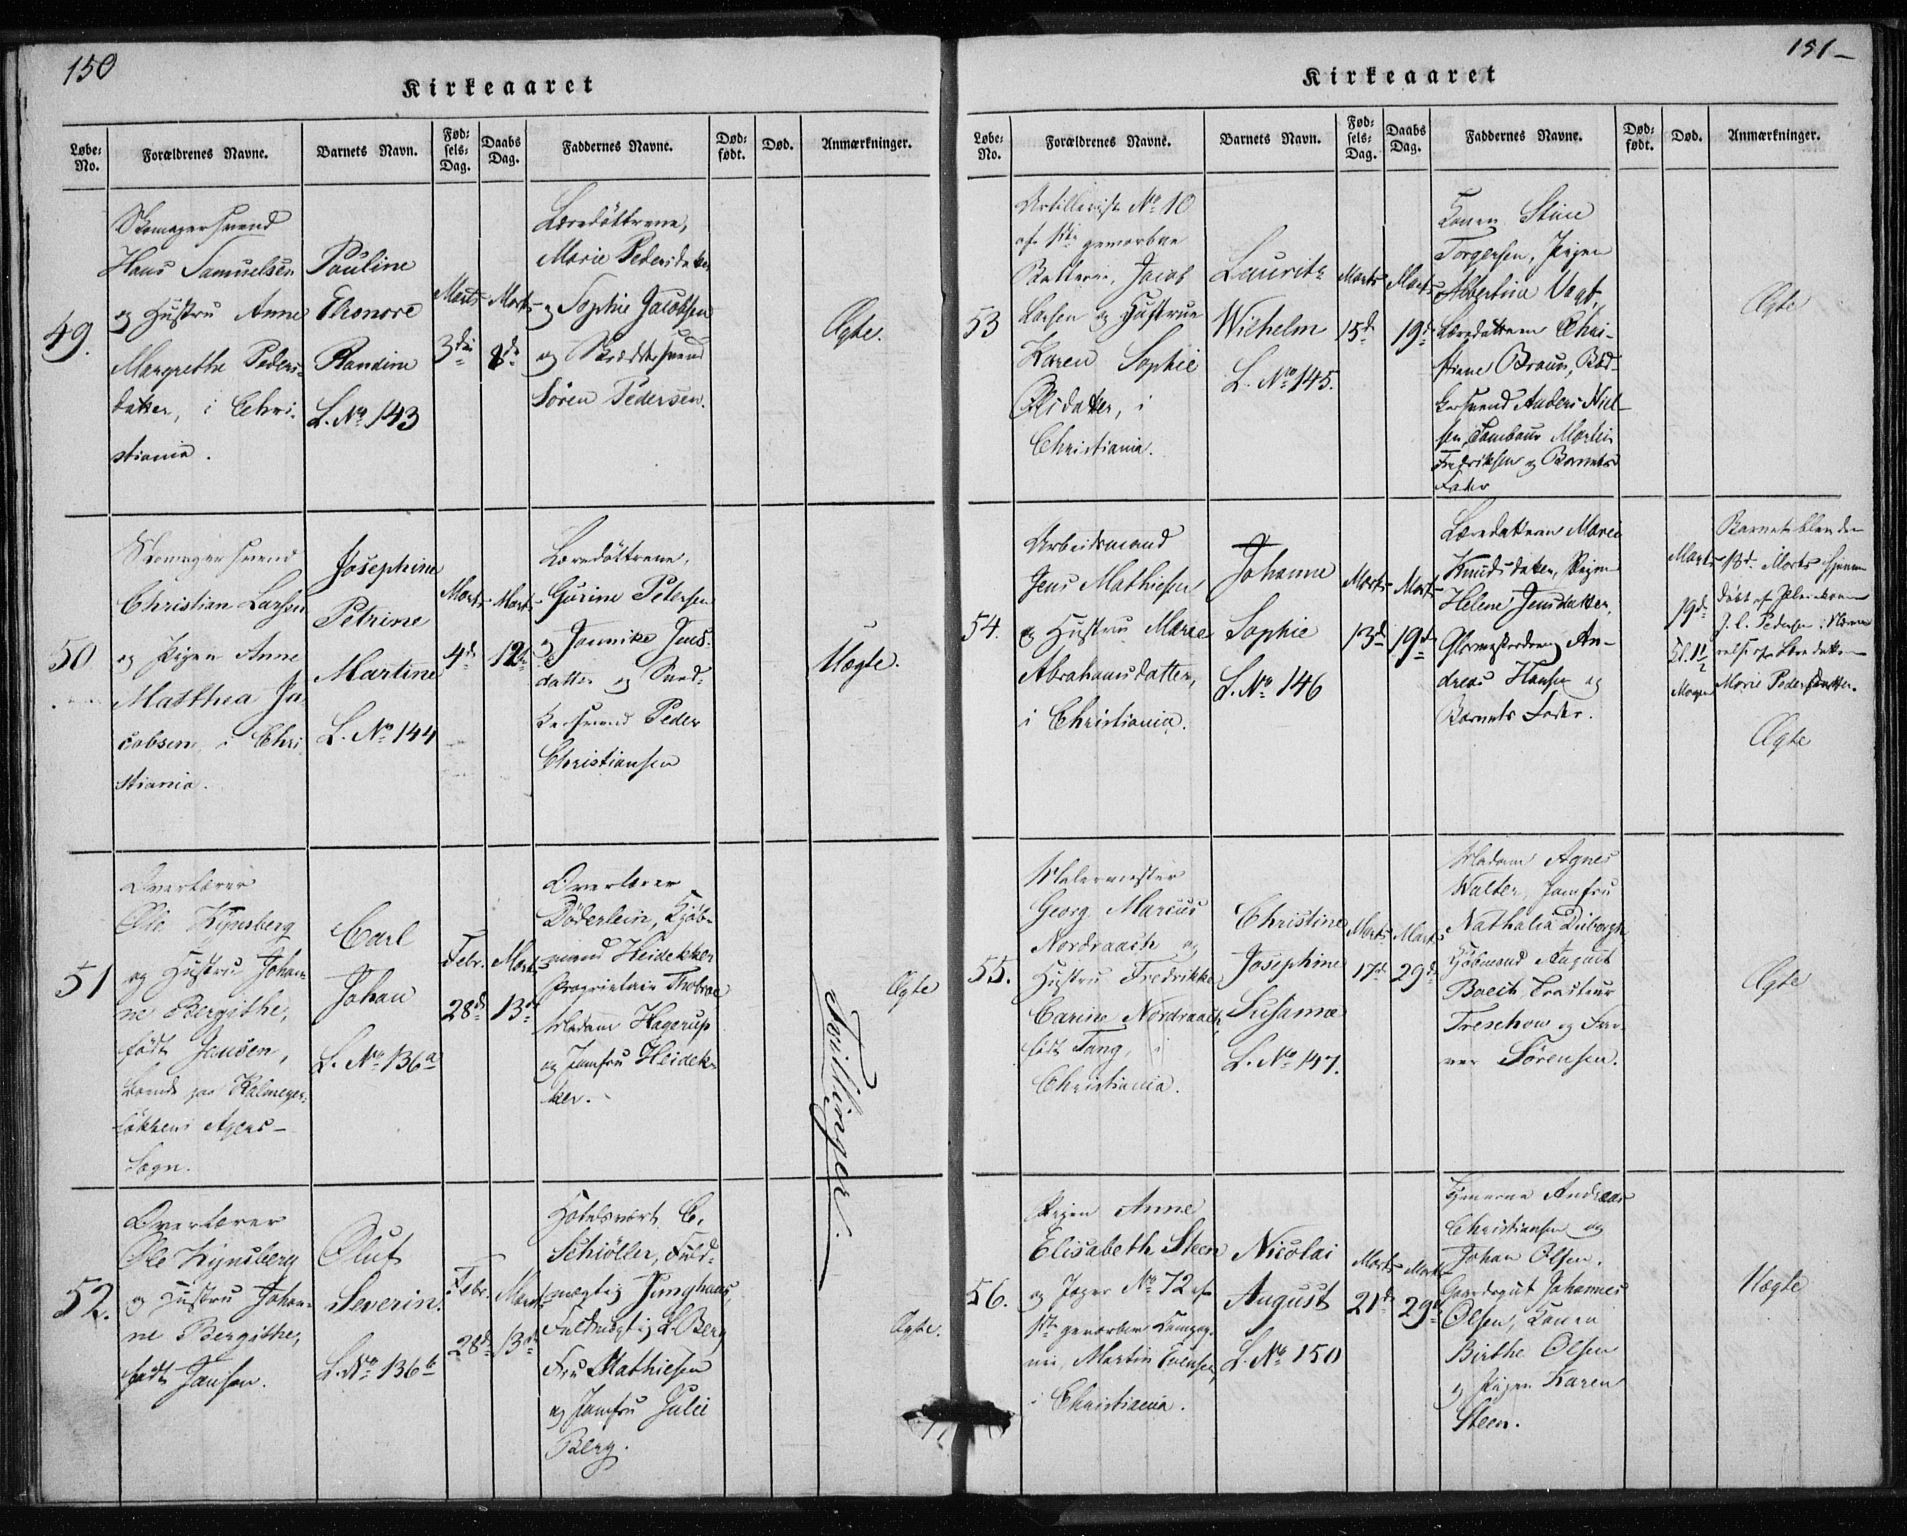 150
Kirkeaaret
Løbe-No.
Forældrenes Navne.
Barnets Navn.
Fød-sels-Dag.
Daabs Dag.
Faddernes Navne.
Død-født.
Død.
Anmærkninger.
49.
Skomagersvend
Hans Samuelsen
og Hustru Anne
Margrethe Peders-
datter, i Chri-
stiania.
Pauline
Elenore
Randine
L. No 143
Marts
3die
Marts
8de
Læredøttrene,
Marie Pedersdatter
og Sophie Jacobsen
og Skræddersvend
Sören Pedersen.
Ægte.
50
Skomagersvend
Christian Larsen
og Pigen Anne
Matthea Ja-
cobsen, i Chri-
stiania.
Josephine
Petrine
Martine
L. No 144
Marts
4de
Marts
12te
Læredøttrene,
Gurine Petersen
og Jannike Jens-
datter og Sned-
kersvend Peder
Christiansen
Uægte.
51
Overlærer
Ole Kynsberg
og Hustru Johan-
ne Bergithe,
født Jansen,
boende paa Kalmeyer-
løkken i Agers-
Sogn.
Carl
Johan
L. No 136a
Febr.
28de
Marts
13de
Overlærer
Döderlein, Kjøb-
mand Heidekker
Proprietair Thebroe
Madame Hagerup
og Jomfru Heidek-
ker.
Ægte
Tvillinger.
52.
Overlærer
Ole Kynsberg
og Hustru Johan-
ne Bergithe,
født Jansen.
Oluf
Severin.
L. No 136b
Febr.
28de
Marts
13de
Hotelvært C.
Schiöller, Fuld-
mægtig Junghans
Fuldmægtig L. Berg
Fru Mathiesen
og Jomfru Julie
Berg.
Ægte.
151-
Kirkeaaret
Løbe-No.
Forældrenes Navne.
Barnets Navn.
Fød-sels-Dag.
Daabs Dag.
Faddernes Navne.
Død-født.
Død.
Anmærkninger.
53
Artillerist No 10
af 1ste gevorbne
Batterie, Jacob
Larsen og Hustrue
Karen Sophie
Olsdatter, i
Christiania.
Lauritz
Wilhelm
L. No 145.
Marts
15de
Marts
19de
Konen Stine
Torgersen, Pigen
Albertine Vogt,
Læredatteren Chri-
stiane Braun, Bød-
kersvend Anders Niel-
sen, Tambour Martin
Fredriksen og Barnets
Fader
Ægte
54.
Arbeidsmand
Jens Mathiesen
og Hustru Marie
Abrahamsdatter,
i Christiania.
Johanne
Sophie
L. No 146
Marts
13de
Marts
19de
Læredatteren Marie
Knudsdatter, Pigen
Helene Jensdatter,
Glarmestersvend An-
dreas Hansen og
Barnets Fader.
Marts
19de
Kl. 1½
Morgen
Barnet blev den
13de Marts hjemme
døbt af Pleiekone
J. C. Pedersen i Nærvæ-
relse af Læredatteren
Marie Pedersdatter.
Ægte
55.
Malermester
Georg Marcus
Nordraach og
Hustru Fredrikke
Carine Nordraach
født Tang, i
Christiania.
Christine
Josephine
Susanne
L. No 147.
Marts
17de
Marts
29de
Madam Agnes
Walter, Jomfru
Nathalia Duborgh
Kjøbmand August
Boeck, Traiteur
Treschow og Far-
ver Sørensen.
Ægte
56.
Pigen Anne
Elisabeth Steen
og Jæger No 72 af
1ste gevorbne Compag-
nie, Martin Evensen,
i Christiania.
Nicolai
August
L. No 150
Marts
21de
Marts
29de
Tjenerne Andreas
Christiansen og
Johan Olsen,
Gaardsgut Johannes
Olsen, Konen
Birthe Olsen
og Pigen Karen
Steen.
Uægte